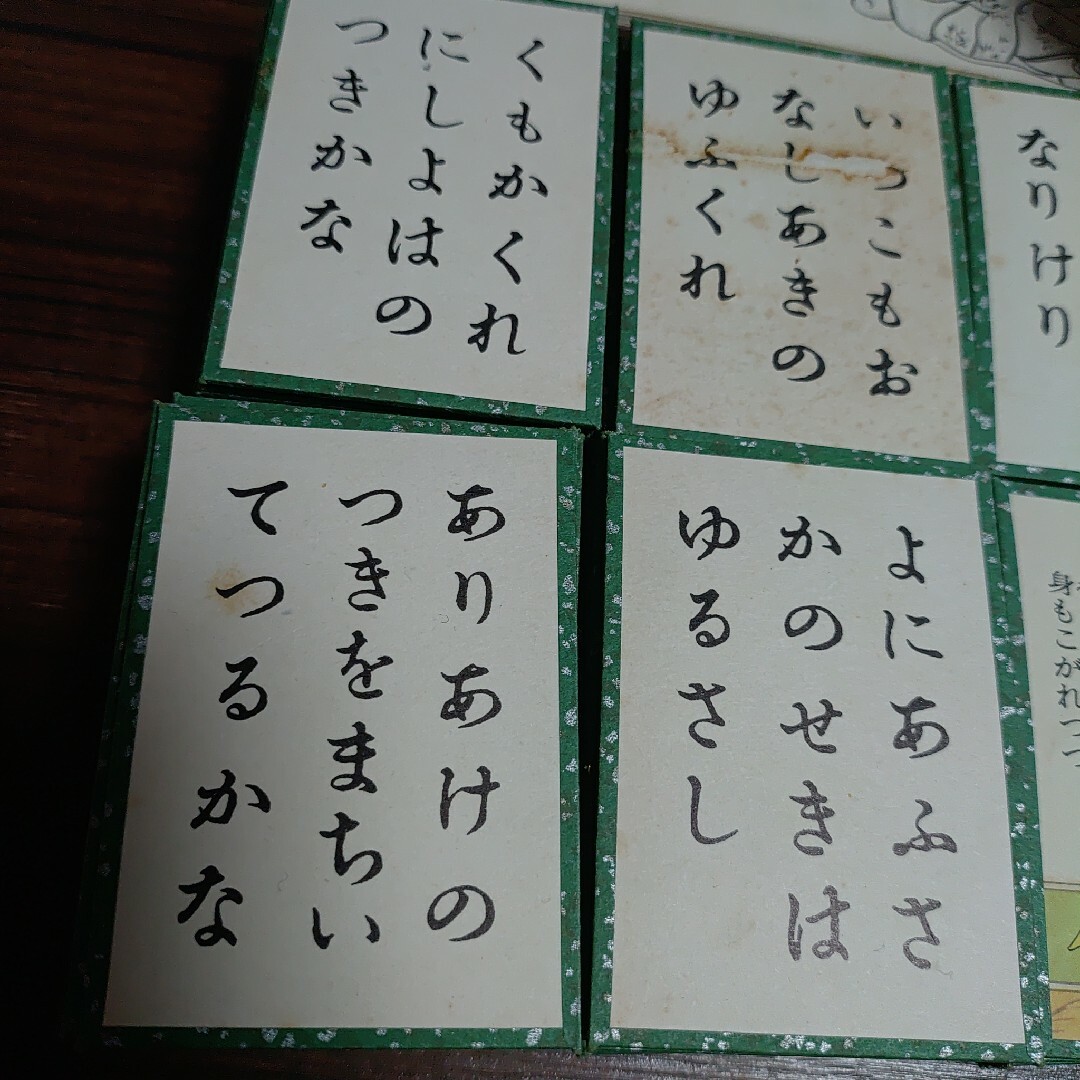 くもかくれ
にしよはの
つきかな
いつこもお
なしあきの
ゆふくれ
なりけり
ありあけの
つきをまちい
てつるかな
よにあふさ
かのせきは
ゆるさし
身もこがれつつ